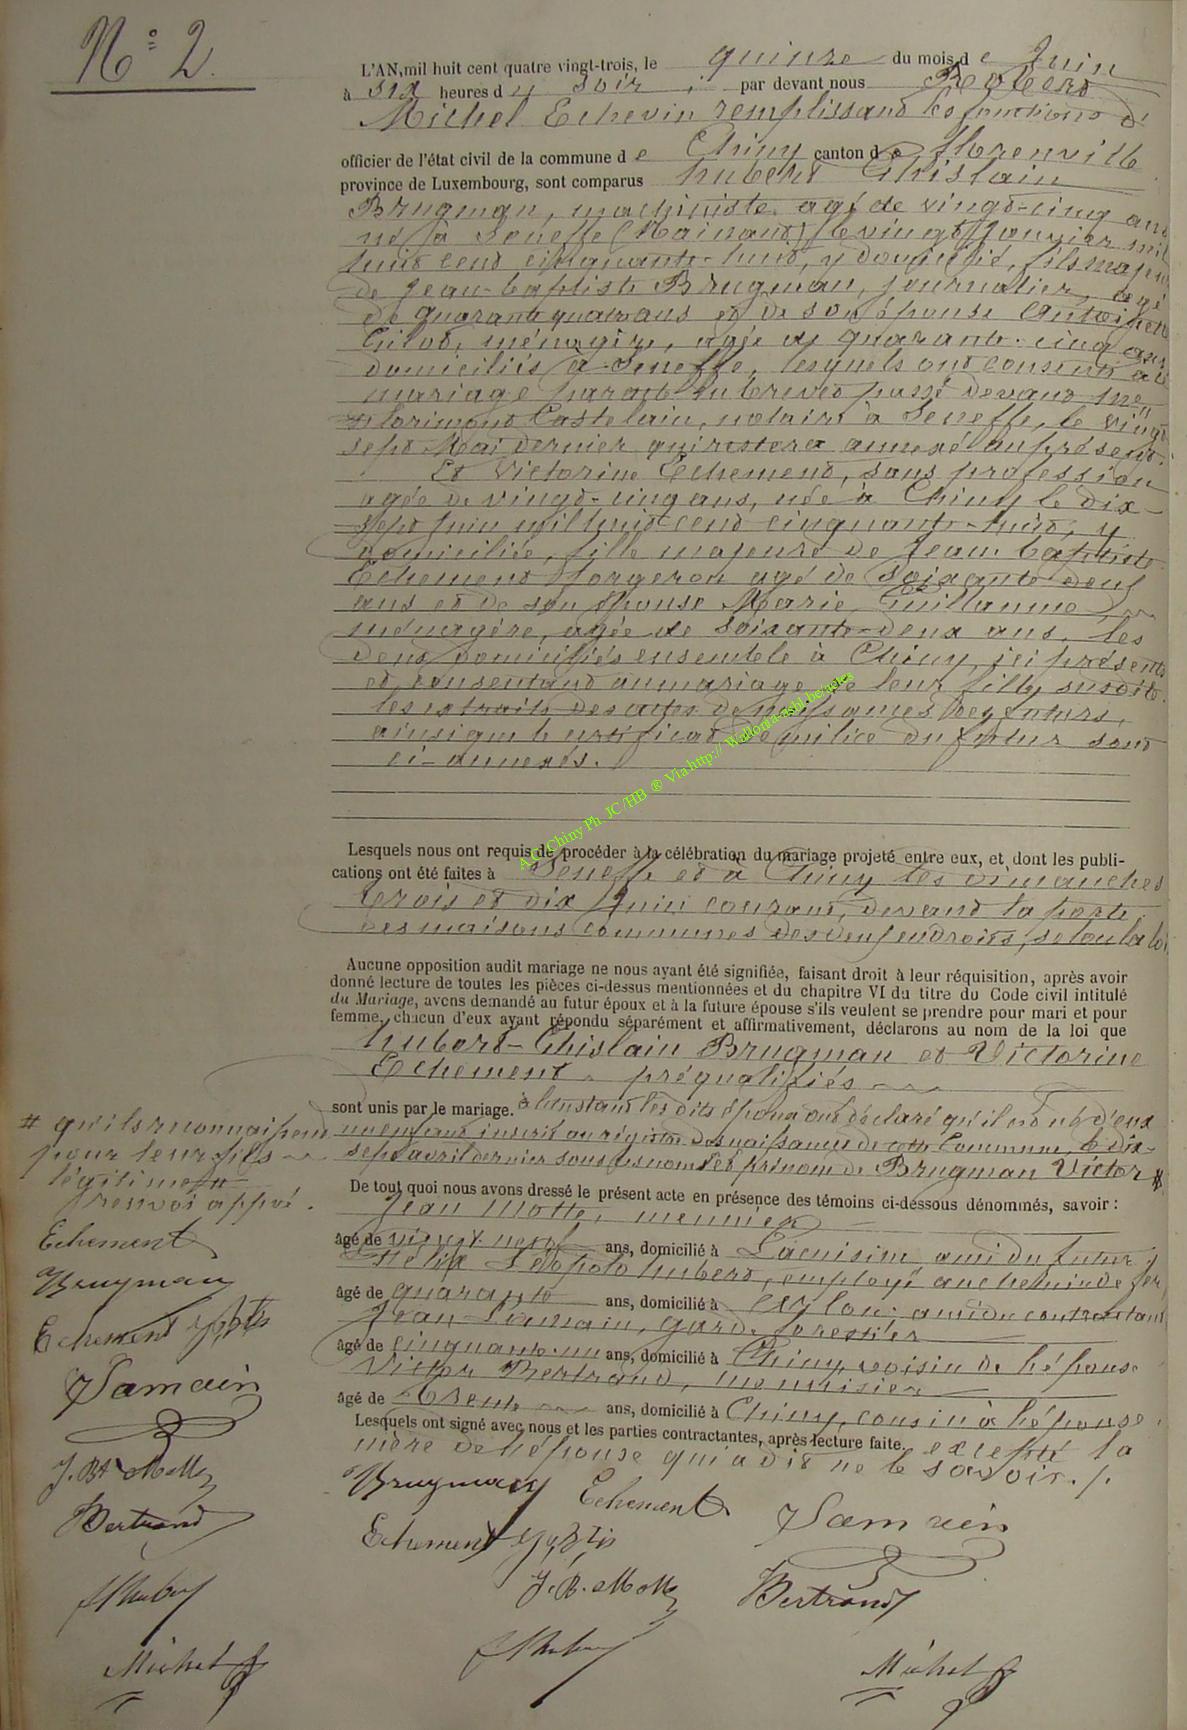 N° 2.
L'AN, mil huit cent quatre vingt-trois, le quinze du mois de Juin
à six heures du soir, par devant nous Robert
Michel Echevin remplissant les fonctions d'
officier de l'état civil de la commune de Chiny canton de florenville
province de Luxembourg, sont comparus hubert Ghislain
Brugman, machiniste, agé de vingt-cinq ans
né à Seneffe (Hainaut) le vingt Janvier mil
huit cent cinquante-huit, y domicilié, fils majeur
de Jean-baptiste Brugman, journalier, agé
de quarante quatre ans et de son épouse Antoinette
ménagère, agée de quarante-cinq ans
domiciliés à Seneffe, lesquels ont consenti à ce
mariage par acte en brevet passé devant Me
florimond Castelain, notaire à Seneffe, le vingt
sept Mai dernier qui restera annexé au présent.
Et Victorine Echement, sans profession
agée de vingt-cinq ans, née à Chiny le dix-
sept juin mil huit cent cinquante-huit, y
domiciliée, fille majeure de Jean baptiste
Echement forgeron agé de soixante-neuf
ans et de son épouse Marie Guillaume,
ménagère, agée de soixante-deux ans, les
deux domiciliés ensemble à Chiny, ici présents
et consentant au mariage de leur fille susdite.
les extraits des actes de naissances des futurs,
ainsi que le certificat de milice du futur sont
ci-annexés.
A.C. Chiny Ph JC/HB ® Via http:// Wallonia-asbl.be/actes
Lesquels nous ont requis de procéder à la célébration du mariage projeté entre eux, et dont les publi-
cations ont été faites à Seneffe et à Chiny les dimanches
trois et dix Juin courant, devant la porte
des maisons communes des deux endroits, selon la loi
Aucune opposition audit mariage ne nous ayant été signifiée, faisant droit à leur réquisition, après avoir
donné lecture de toutes les pièces ci-dessus mentionnées et du chapitre VI du titre du Code civil intitulé
du Mariage, avons demandé au futur époux et à la future épouse s'ils veulent se prendre pour mari et pour
femme, chacun d'eux ayant répondu séparément et affirmativement, déclarons au nom de la loi que
hubert-Ghislain Brugman et Victorine
Echement préqualifiés
sont unis par le mariage. à l'instant les dits époux ont déclaré qu'il est né d'eux
un enfant inscrit au régistre des naissances de cette Commune, le dix-
sept avril dernier sous les noms et prénom de Brugman Victor #
# qu'ils reconnaissent
pour leur fils
légitime
renvoi appvé.
Echement
Brugman
Echement Jn Bte
J Samain
J. Bte Motte
Bertrand
F L hubert
Michel
De tout quoi nous avons dressé le présent acte en présence des témoins ci-dessous dénommés, savoir :
Jean Motte, meunier
âgé de vingt neuf ans, domicilié à Lacuisine ami du futur,
Félix Léopold hubert, employé au chemin de fer
âgé de quarante ans, domicilié à ami du contractant
Jean Samain, garde forestier
âgé de cinquante-un ans, domicilié à Chiny, voisin de l'épouse
Victor Bertrand, menuisier
âgé de trente ans, domicilié à Chiny, cousin à l'épouse.
Lesquels ont signé avec nous et les parties contractantes, après lecture faite. excepté la
mère de l'épouse qui a dit ne le savoir. /.
Brugman Echement J Samain
Echement Jn Bte
J. B. Motte Bertrand
F L hubert Michel